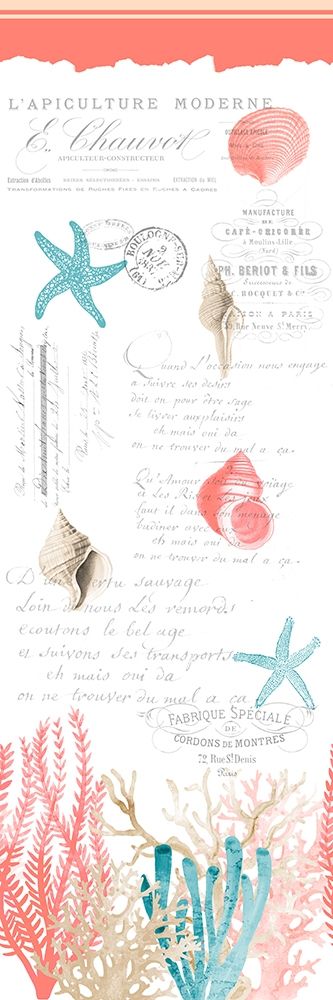 L'APICULTURE MODERNE
E. Chauvot
APICULTEUR-CONSTRUCTEUR
Extraction d'Abeilles
Extraction du Miel
TRANSFORMATIONS DE RUCHES FIXES EN RUCHES A CADRES
BOULOGNE-SUR-
MANUFACTURE
DE
CAFÉ-CHICORÉE
à Moulins-Lille
(Nord)
PH. BERIOT & FILS
Successeurs de
ROCQUET & Cie
MAISON A PARIS
Rue Neuve St Merry
Quand L'occasion nous engage
a Suivre ses desirs
doit on pour être sage
Se livrer aux plaisirs
eh mais oui da
on ne trouver du mal a ça.
Qu'Amour
et Les Ris et Les
faut il dans son menage
badiner avec
eh mais oui da
on ne trouver du mal a ça.
D'une vertu sauvage
Loin de nous Les remords
ecoutons le bel age
et suivons ses transports
eh mais oui da
on ne trouver du mal a ça
FABRIQUE SPÉCIALE
DE
CORDONS DE MONTRES
72, Rue St Denis
Paris